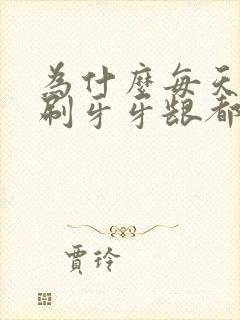 為什麼每天
刷牙牙龈都
賈玲